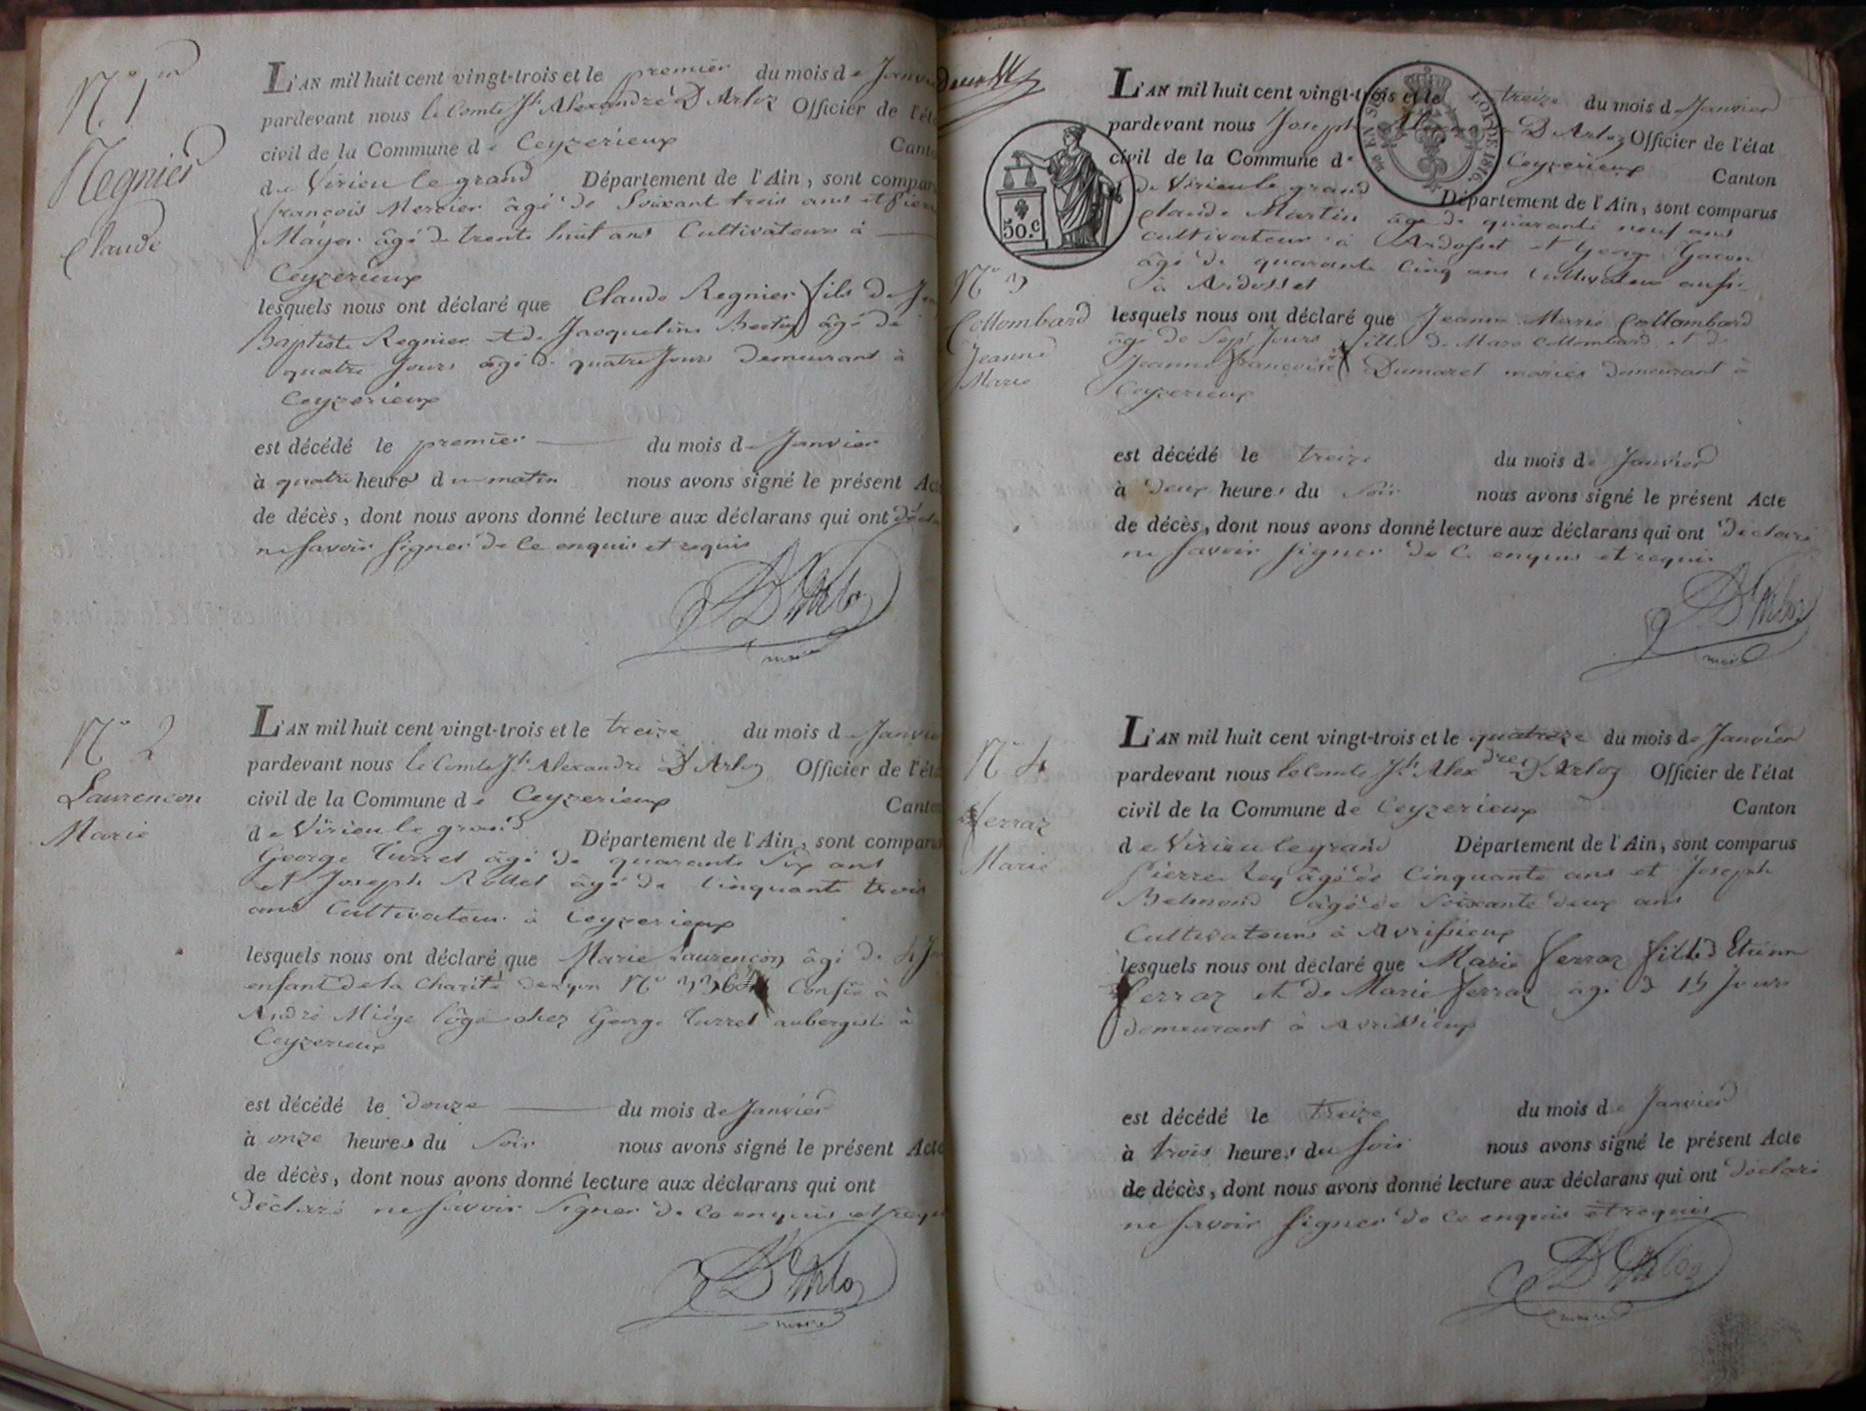 N.° 1er
Regnier
Claude
L'AN mil huit cent vingt-trois et le premier du mois de Janvi
pardevant nous le Comte Jh Alexandre D'Arloz Officier de l'éta
civil de la Commune de Ceyzerieux Canto
de Virieu le grand Département de l'Ain, sont compar
françois Mercier âgé de Soixant trois ans et pierr
Mayer âgé de trente huit ans Cultivateurs à
Ceyzerieux
lesquels nous ont déclaré que Claude Regnier fils de Jea
Baptiste Regnier et de Jacqueline Bertin âgé de
quatre Jours âgé de quatre Jours demeurant à
Ceyzerieux
est décédé le premier du mois de Janvier
à quatre heures du matin nous avons signé le présent Act
de décès, dont nous avons donné lecture aux déclarans qui ont décla
ne savoir signer de ce enquis et requis
D'Arloz
maire
N° 2
Laurencon
Marie
L'AN mil huit cent vingt-trois et le treize du mois de Janvie
pardevant nous le Comte Jh Alexandre D'Arloz Officier de l'éta
civil de la Commune de Ceyzerieux Canton
de Virieu le grand Département de l'Ain, sont comparu
George Turrel âgé de quarante Six ans
et Joseph Rollet âgé de Cinquante trois
ans Cultivateur à Ceyzerieux
lesquels nous ont déclaré que Marie Laurençon âgé de 4 Jou
enfant de la Charité de Lyon N° 336 Confié à
André Miège logé chez George Turrel aubergiste à
Ceyzerieux
est décédé le douze du mois de Janvier
à onze heures du Soir nous avons signé le présent Acte
de décès, dont nous avons donné lecture aux déclarans qui ont
déclaré ne savoir Signer de ce enquis et requ
D'Arloz
maire
50.C
LOI DE 1816
N° 3
Collombard
Jeanne
Marie
L'AN mil huit cent vingt-trois et le treize du mois de Janvier
pardevant nous Joseph D'Arloz Officier de l'état
civil de la Commune de Ceyzerieux Canton
de Virieu le grand Département de l'Ain, sont comparus
Claude Martin âgé de quarante neuf ans
Cultivateur à Ardosset et George Gacon
âgé de quarante Cinq ans Cultivateur aussi
à Ardosset
lesquels nous ont déclaré que Jeanne Marie Collombard
âgé de Sept Jours fille de Marc Collombard et de
Jeanne françoise Dumarel mariés demeurant à
Ceyzerieux
est décédé le treize du mois de Janvier
à deux heures du Soir nous avons signé le présent Acte
de décès, dont nous avons donné lecture aux déclarans qui ont déclaré
ne savoir signer de ce enquis et requis
D'Arloz
maire
N° 4
ferraz
Marie
L'AN mil huit cent vingt-trois et le quatorze du mois de Janvier
pardevant nous le Comte Jh Alexdre D'Arloz Officier de l'état
civil de la Commune de Ceyzerieux Canton
de Virieu le grand Département de l'Ain, sont comparus
Pierre Rey âgé de Cinquante ans et Joseph
Belmond âgé de Soixante deux ans
Cultivateurs à Avrissieux
lesquels nous ont déclaré que Marie ferraz fille d Etienne
ferraz et de Marie ferraz âgé d 15 Jours
demeurant à Avrissieux
est décédé le treize du mois de Janvier
à trois heures du Soir nous avons signé le présent Acte
de décès, dont nous avons donné lecture aux déclarans qui ont déclaré
ne savoir signer de ce enquis et requis
D'Arloz
maire